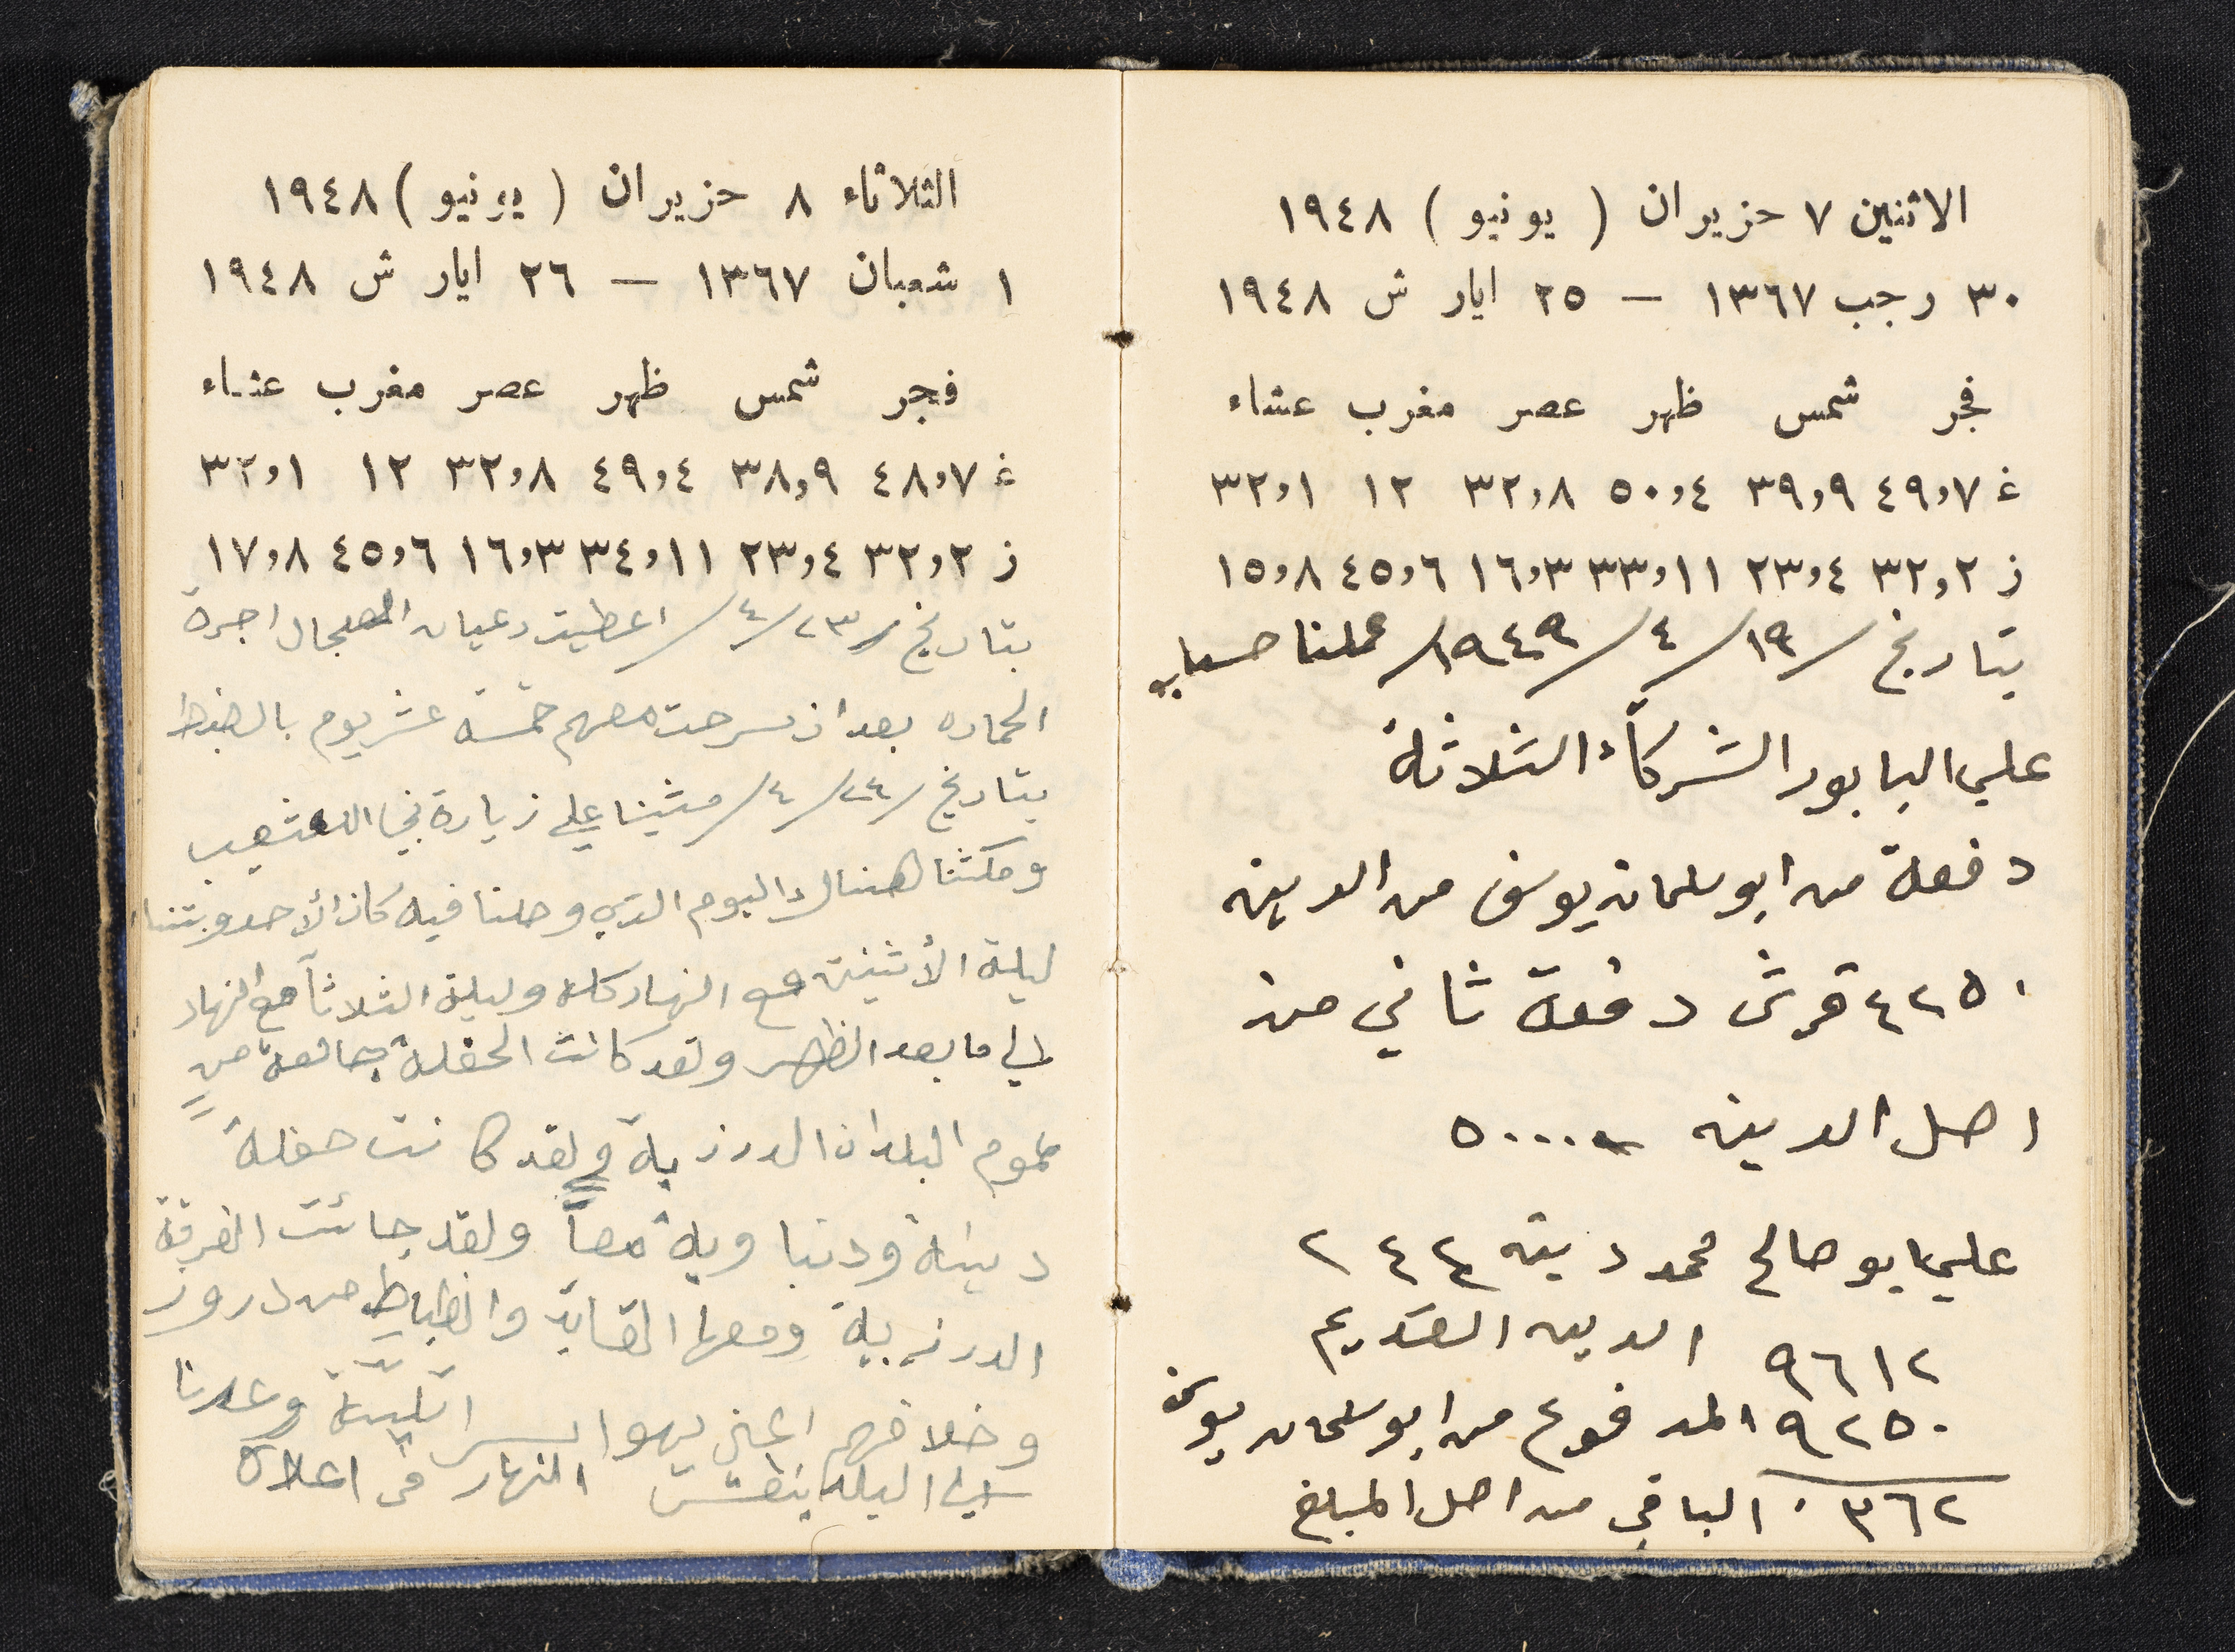 الاثنين ٧ حزيران ( يونيو ) ١٩٤٨
٣٠ رجب ١٣٦٧ — ٢٥ ايار ش ١٩٤٨
فجر شمس ظهر عصر مغرب عشاء
غ ٤٩,٧ ٣٩,٩ ٥٠,٤ ٣٢,٨ ١٢ ٣٢,١
ز ٣٢,٢ ٢٣,٤ ٣٣,١١ ١٦,٣ ٤٥,٦ ١٥,٨
بتاريخ /١٩/٤/١٩٤٩/ عملنا حساب
علي البابور الشركآء الثلاثة
دفعة من ابو سلمان يوسف من الدينه
٤٢٥٠ قرش دفعة ثاني من
اصل الدينه ٥٠٠٠
علي ابو صالح محمود دينه ٢٤٤٢
٩٦١٢ الدين القديم
٩٢٥٠ المدفوع من ابو سلمان يوسف
٠٣٦٢ الباقي من اصل المبلغ
الثلاثاء ٨ حزيران ( يونيو ) ١٩٤٨
١ شعبان ١٣٦٧ — ٢٦ ايار ش ١٩٤٨
فجر شمس ظهر عصر مغرب عشاء
غ ٤٨,٧ ٣٨,٩ ٤٩,٤ ٣٢,٨ ١٢ ٣٢,١
ز ٣٢,٢ ٢٣,٤ ٣٤,١١ ١٦,٣ ٤٥,٦ ١٧,٨
بتاريخ /٢٣/٤/ اعطيت رعيان العجال اجرة
الحماره بعد ان سرحت معهم خمسة عشر يوم بالضبط
بتاريخ /٢٤/٤/ مشينا علي زيارة نبي الله شعيب
ومكثنا هنالك اليوم الذي وصلنا فيه كان الأحد وبتنا
ليلة الأثنين مع النهار كله وليلة الثلاثآ مع النهار
الي ما بعد الظهر ولقد كانت الحفلة جامعة من
عموم البلدان الدرزية ولقد كانت حفلة
دينية ودنياوية معاً ولقد جائت الفرقة
الدرزية ومعها القايد والظباط من دروز
وخلافهم اعني يهوا اسرائيلية وعدنا
النهار في اعلاه